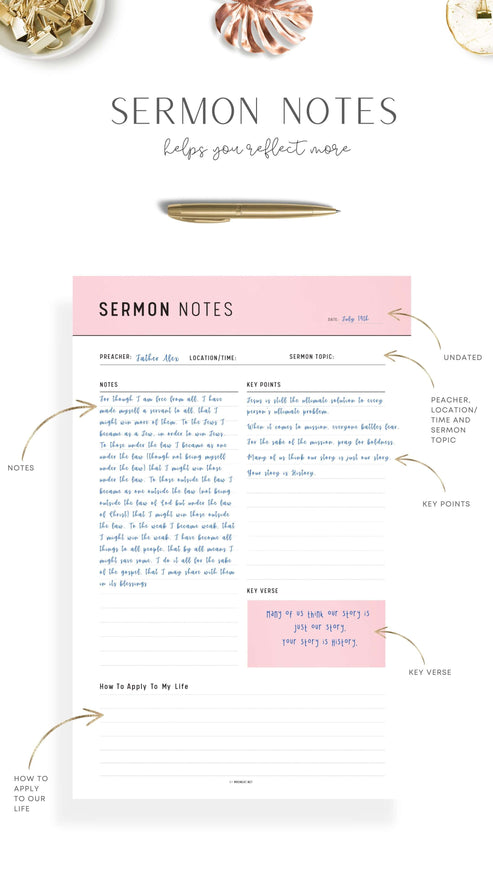 SERMON NOTES
helps you reflect more
SERMON NOTES
DATE: July 19th
UNDATED
PREACHER: Father Alex LOCATION/TIME: SERMON TOPIC:
PEACHER,
LOCATION/
TIME AND
SERMON
TOPIC
NOTES
For though I am free from all, I have
made myself a servant to all, that I
might win more of them. To the Jews I
became as a Jew, in order to win Jews.
To those under the law I became as one
under the law (though not being myself
under the law) that I might win those
under the law. To those outside the law I
became as one outside the law (not being
outside the law of God but under the law
of Christ) that I might win those outside
the law. To the weak I became weak, that
I might win the weak. I have become all
things to all people, that by all means I
might save some. I do it all for the sake
of the gospel, that I may share with them
in its blessings.
NOTES
KEY POINTS
Jesus is still the ultimate solution to every
person's ultimate problem.
When it comes to mission, everyone battles fear.
For the sake of the mission, pray for boldness.
Many of us think our story is just our story.
Your story is History.
KEY POINTS
KEY VERSE
Many of us think our story is
just our story.
Your story is History.
KEY VERSE
How To Apply To My Life
HOW TO
APPLY
TO OUR
LIFE